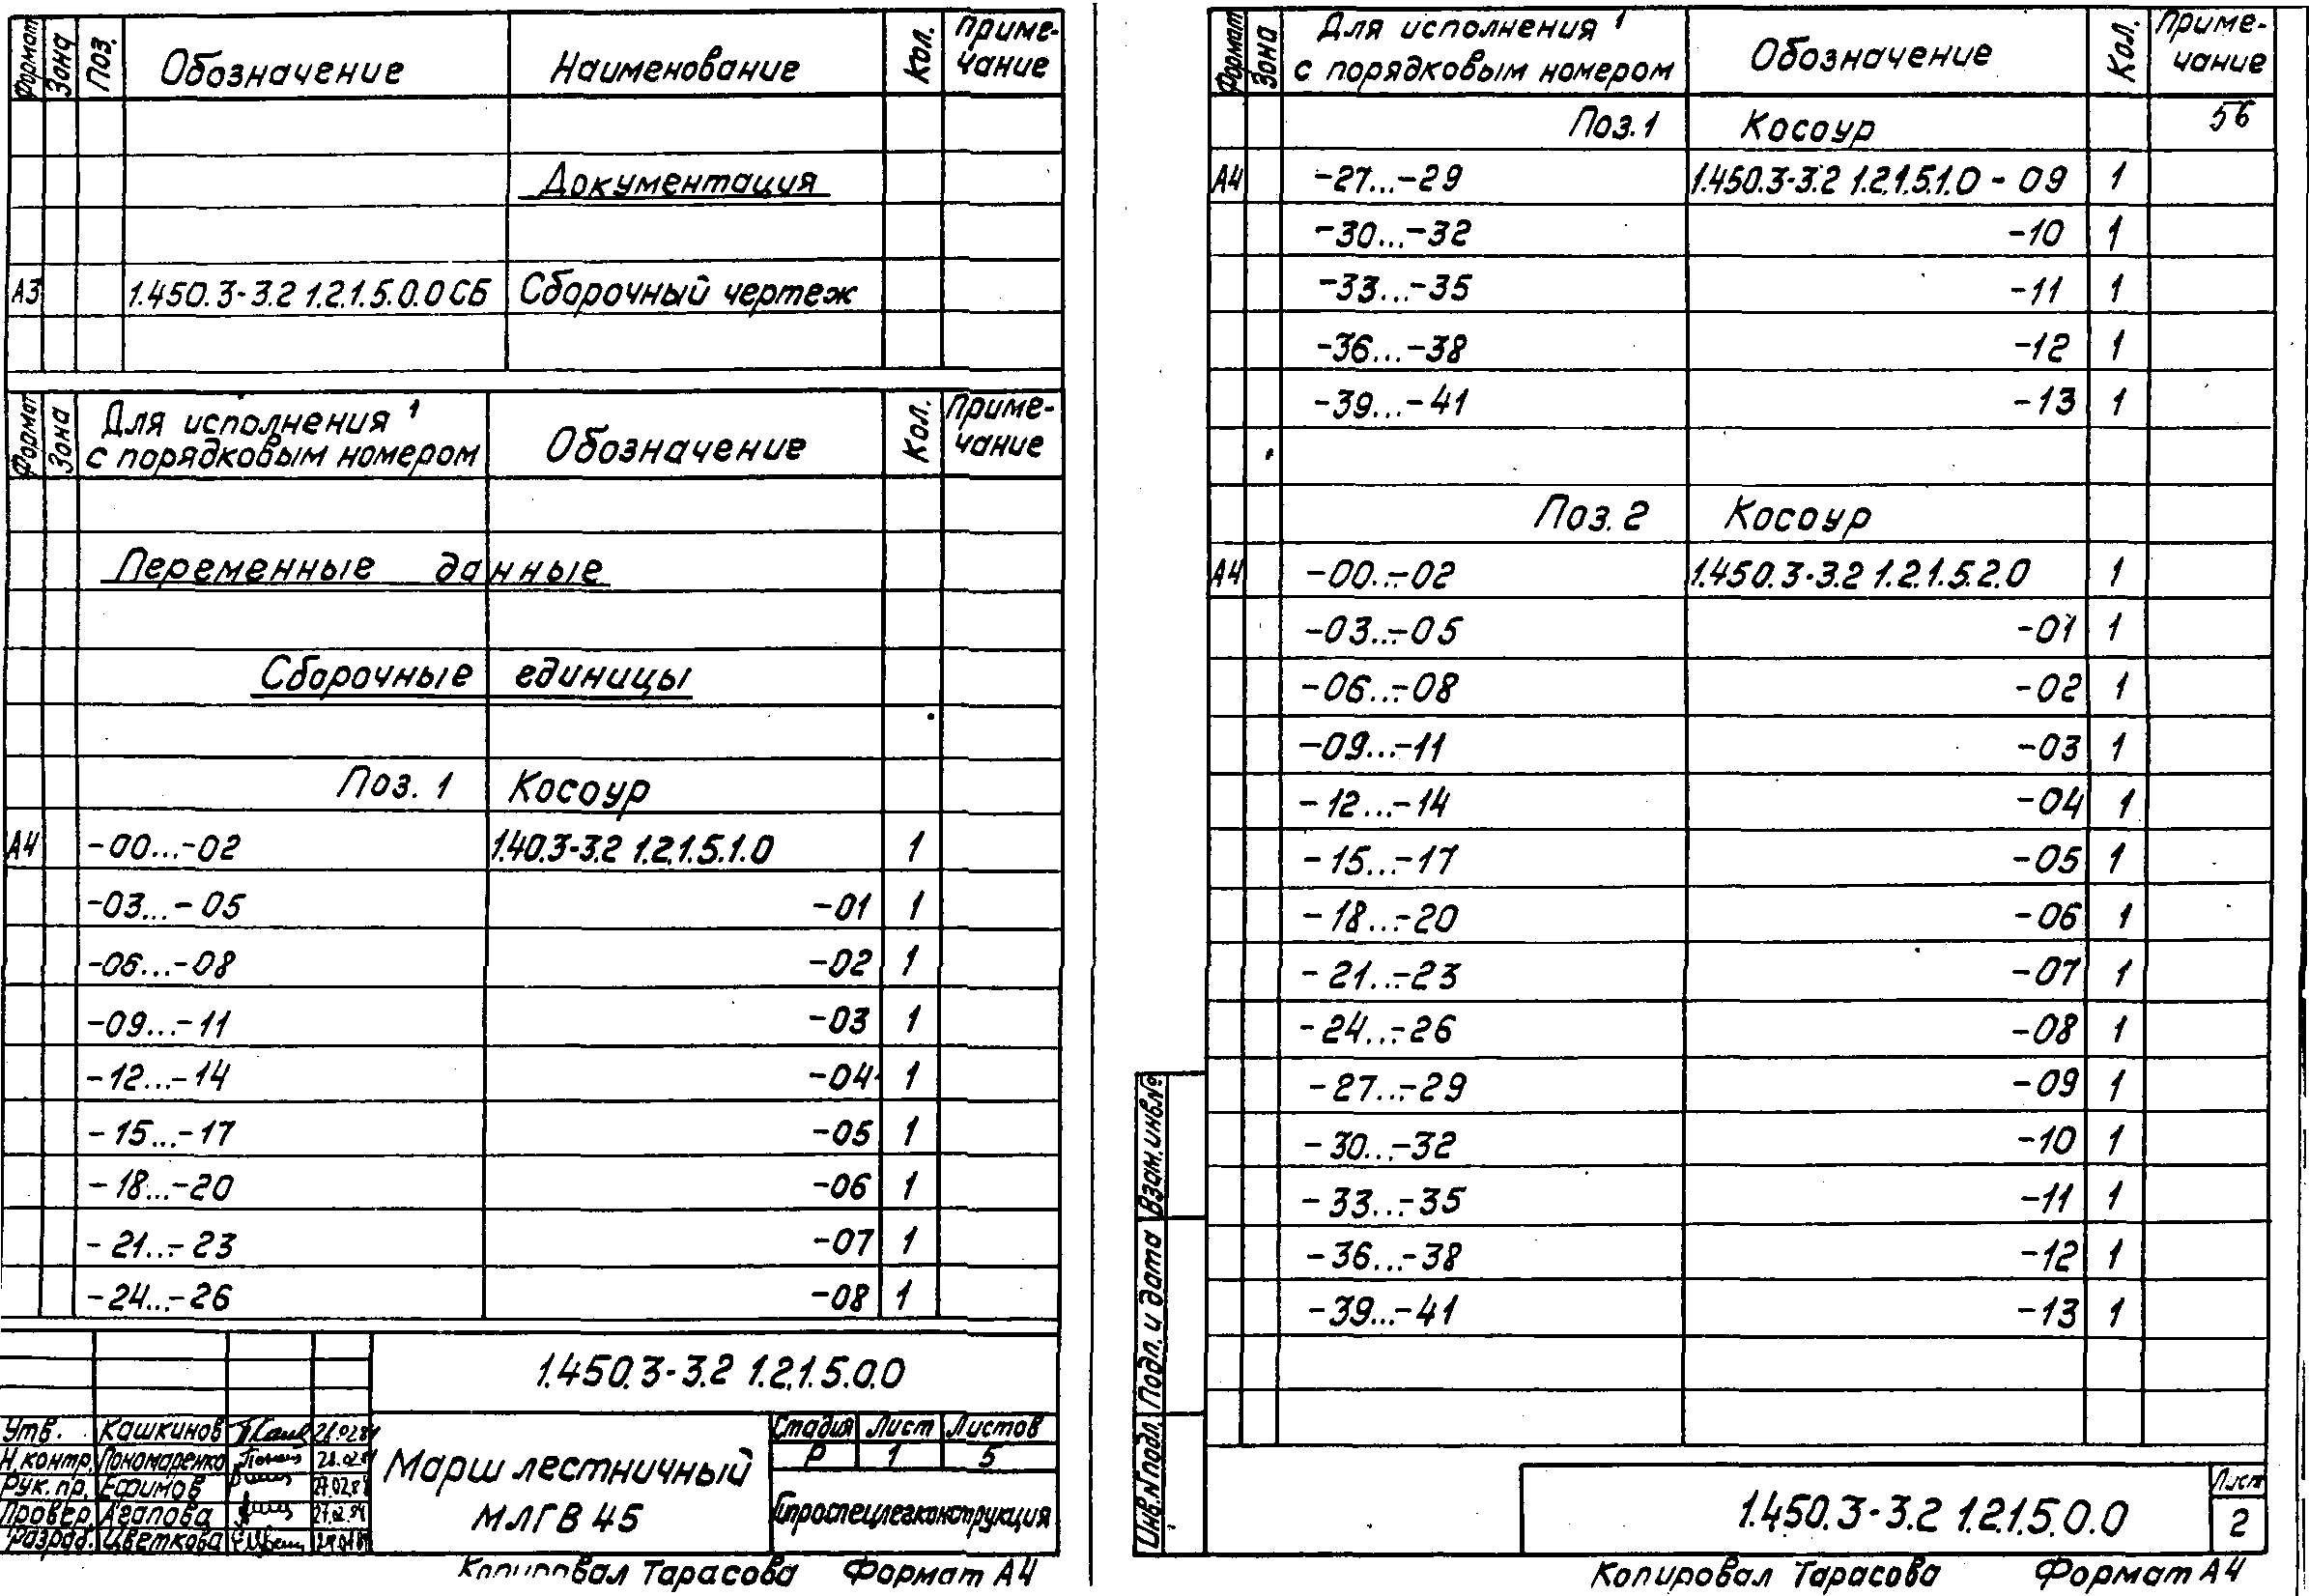 Формат Зона Поз. Обозначение Наименование Кол. Приме-
чание
Документация
А3 1.450.3-3.2 1.2.1.5.0.0 СБ Сборочный чертеж
Формат Зона Для исполнения 1 Обозначение Кол. Приме-
с порядковым номером чание
Переменные данные
Сборочные единицы
Поз. 1 Косоур
А4 -00...-02 1.40.3-3.2 1.2.1.5.1.0 1
-03...-05 -01 1
-06...-08 -02 1
-09...-11 -03 1
-12...-14 -04 1
-15...-17 -05 1
-18...-20 -06 1
-21...-23 -07 1
-24...-26 -08 1
1.450.3-3.2 1.2.1.5.0.0
Утв. Кашкинов
Н.контр. Пономаренко
Рук. пр. Ефимов
Провер. Агапова
Разраб. Цветкова
Марш лестничный
МЛГВ 45
Стадия Лист Листов
Р 1 5
Гипроспецлегконструкция
Копировал Тарасова Формат А4
Формат Зона Для исполнения 1 Обозначение Кол. Приме-
с порядковым номером чание
Поз. 1 Косоур 56
А4 -27...-29 1.450.3-3.2 1.2.1.5.1.0 - 09 1
-30...-32 -10 1
-33...-35 -11 1
-36...-38 -12 1
-39...-41 -13 1
Поз. 2 Косоур
А4 -00...-02 1.450.3-3.2 1.2.1.5.2.0 1
-03...-05 -01 1
-06...-08 -02 1
-09...-11 -03 1
-12...-14 -04 1
-15...-17 -05 1
-18...-20 -06 1
-21...-23 -07 1
-24...-26 -08 1
-27...-29 -09 1
-30...-32 -10 1
-33...-35 -11 1
-36...-38 -12 1
-39...-41 -13 1
Взам. инв. №
Подл. и дата
Инв. № подл.
1.450.3-3.2 1.2.1.5.0.0
Лист
2
Копировал Тарасова Формат А4